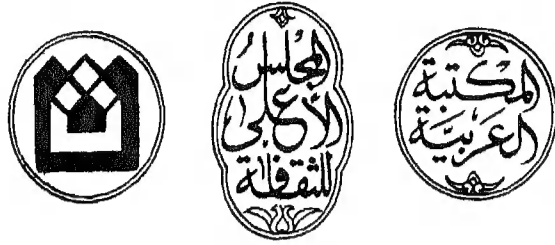 المكتبة
العربية
المجلس
الأعلى
للثقافة